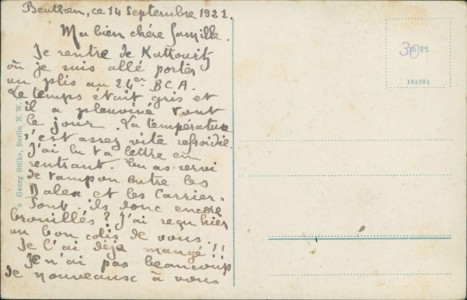 Beuthen, ce 14 Septembre 1921.
Ma bien chère famille.
Je rentre de Kattowitz
où je suis allé porter
un plis au 24e B.C.A.
Le temps était gris et
il a pleuviné tout
le jour. La température
s'est assez vite refroidie.
J'ai lu ta lettre en
rentrant. Tu as servi
de tampon entre les
Dalex et les Carrier.
Sont-ils donc encore
brouillés? J'ai reçu hier
un bon colis de vous.
Je l'ai déjà mangé!!
Je n'ai pas beaucoup
de nouveaux à vous
Georg Stilke, Berlin N.W.
30